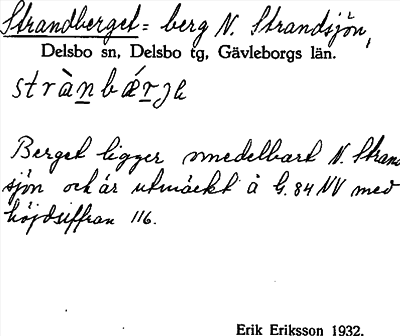 Strandberget = berg N. Strandsjön,
Delsbo sn, Delsbo tg, Gävleborgs län.
strànbǽrje
Berget ligger omedelbart N. Strand
sjön och är utmärkt å G. 84 NV med
höjdsiffran 116.
Erik Eriksson 1932.